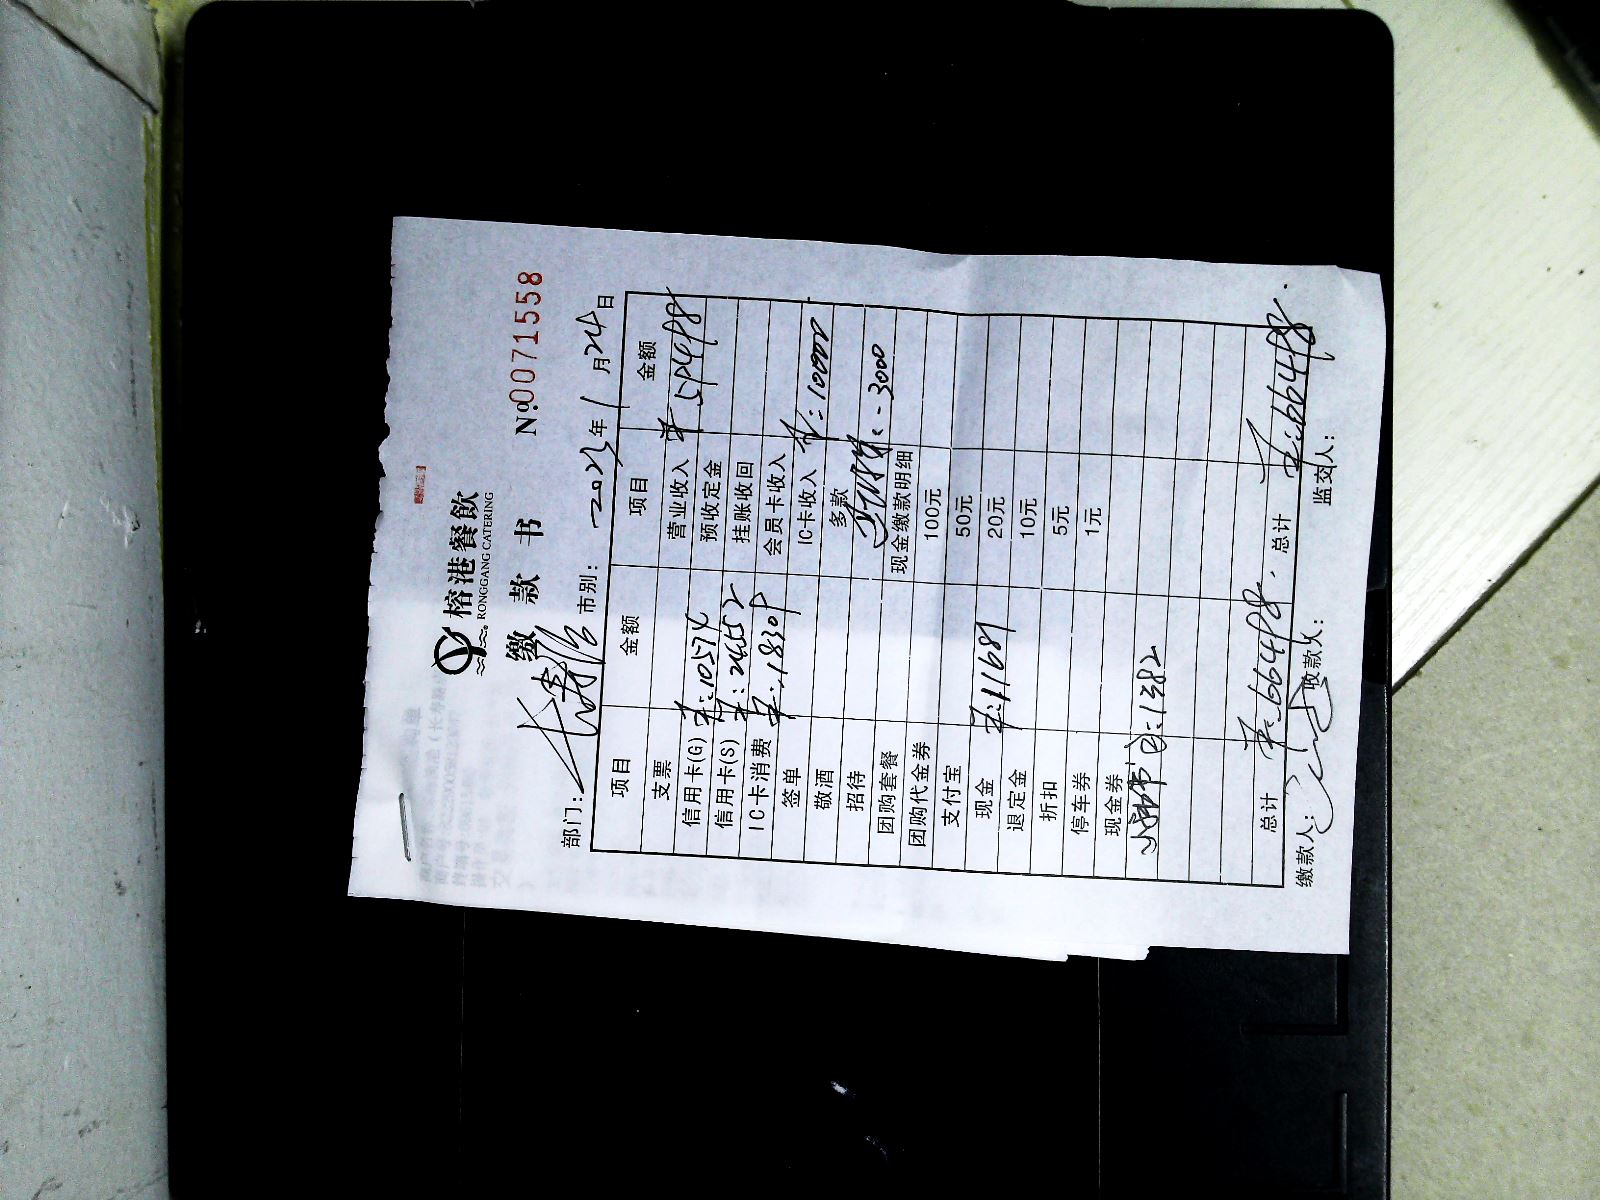 榕港餐飲
RONGGANG CATERING
缴 款 书 №0071558
部门: 市别: 2023年1月24日
项目 金额 项目 金额
支票 营业收入 ¥:59498
信用卡(G) ¥:10574 预收定金
信用卡(S) ¥:24552 挂账收回
IC卡消费 ¥:18309 会员卡收入
签单 IC卡收入 ¥:10000
敬酒 多款
招待 -3000
团购套餐 现金缴款明细
团购代金券 100元
支付宝 50元
现金 ¥:11681 20元
退定金 10元
折扣 5元
停车券 1元
现金券
:1382
总计 ¥:66498. 总计 ¥:66498.
缴款人: 收款人: 监交人: